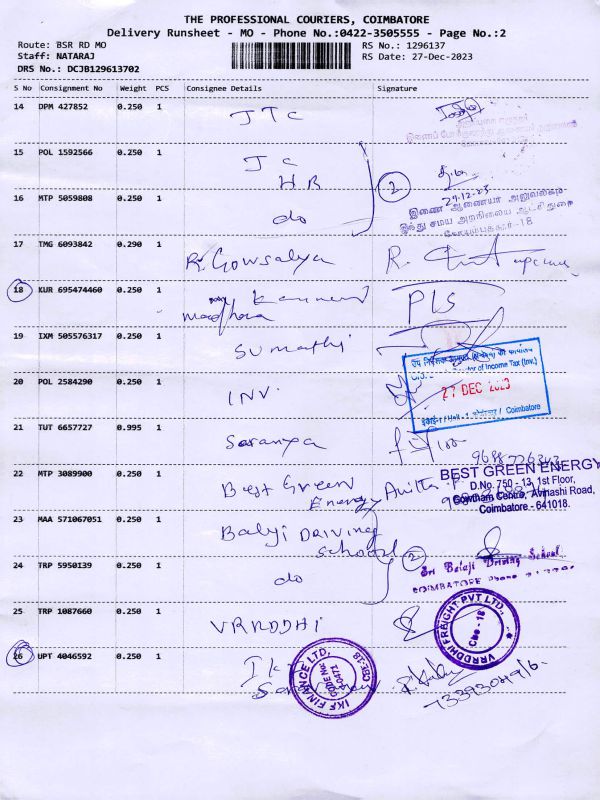 THE PROFESSIONAL COURIERS, COIMBATORE
Delivery Runsheet - MO - Phone No.:0422-3505555 - Page No.:2
Route: BSR RD MO
RS No.: 1296137
Staff: NATARAJ
RS Date: 27-Dec-2023
DRS No.: DCJB129613702
S No Consignment No Weight PCS Consignee Details Signature
14 DPM 427852 0.250 1 JTC
15 POL 1592566 0.250 1 JC
HR
2
29-12-23
16 MTP 5059808 0.250 1 do
இணை ஆணையர் அலுவலகம்
இந்து சமய அறநிலைய ஆட்சிதுறை
கோயமுத்தூர்-18
17 TMG 6093842 0.290 1 R. Gowsalya R.
18 KUR 695474460 0.250 1
PLS
19 IXM 505576317 0.250 1 Sumathi
of Income Tax (Inv.)
27 DEC 2023
20 POL 2584290 0.250 1 INV.
Unit - 1 / Coimbatore
21 TUT 6657727 0.995 1 Saranya
22 MTP 3089900 0.250 1 Best Green
Energy Anitta
BEST GREEN ENERGY
D.No. 750 - 13, 1st Floor,
Gowtham Centre, Avinashi Road,
Coimbatore - 641018.
23 MAA 571067051 0.250 1 Balaji Driving
School
2
24 TRP 5950139 0.250 1 do
Sri Balaji Driving School
COIMBATORE Phone
25 TRP 1087660 0.250 1 VRRDDHI
VRRDDHI FREIGHT PVT LTD.,
Cbe - 18
26 UPT 4046592 0.250 1
IKF FINANCE LTD,
CODE NK
0471
CBE-18